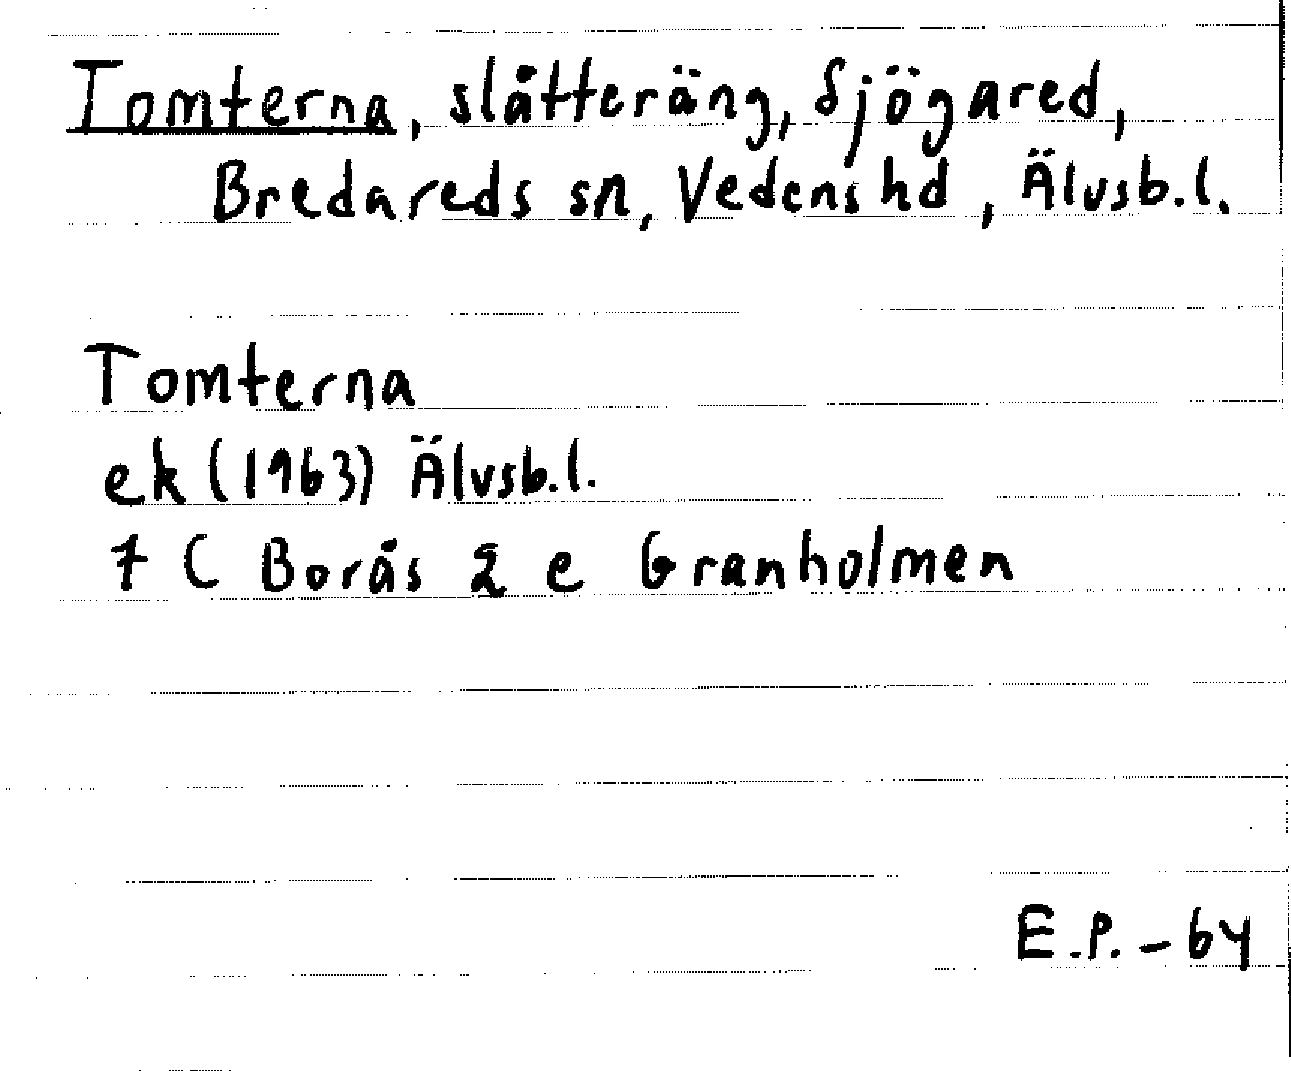 Tomterna, slåtteräng, Sjögared,
Bredareds sn, Vedens hd, Älvsb.l.
Tomterna
ek (1963) Älvsb.l.
7 C Borås 2 e Granholmen
E.P. - 64